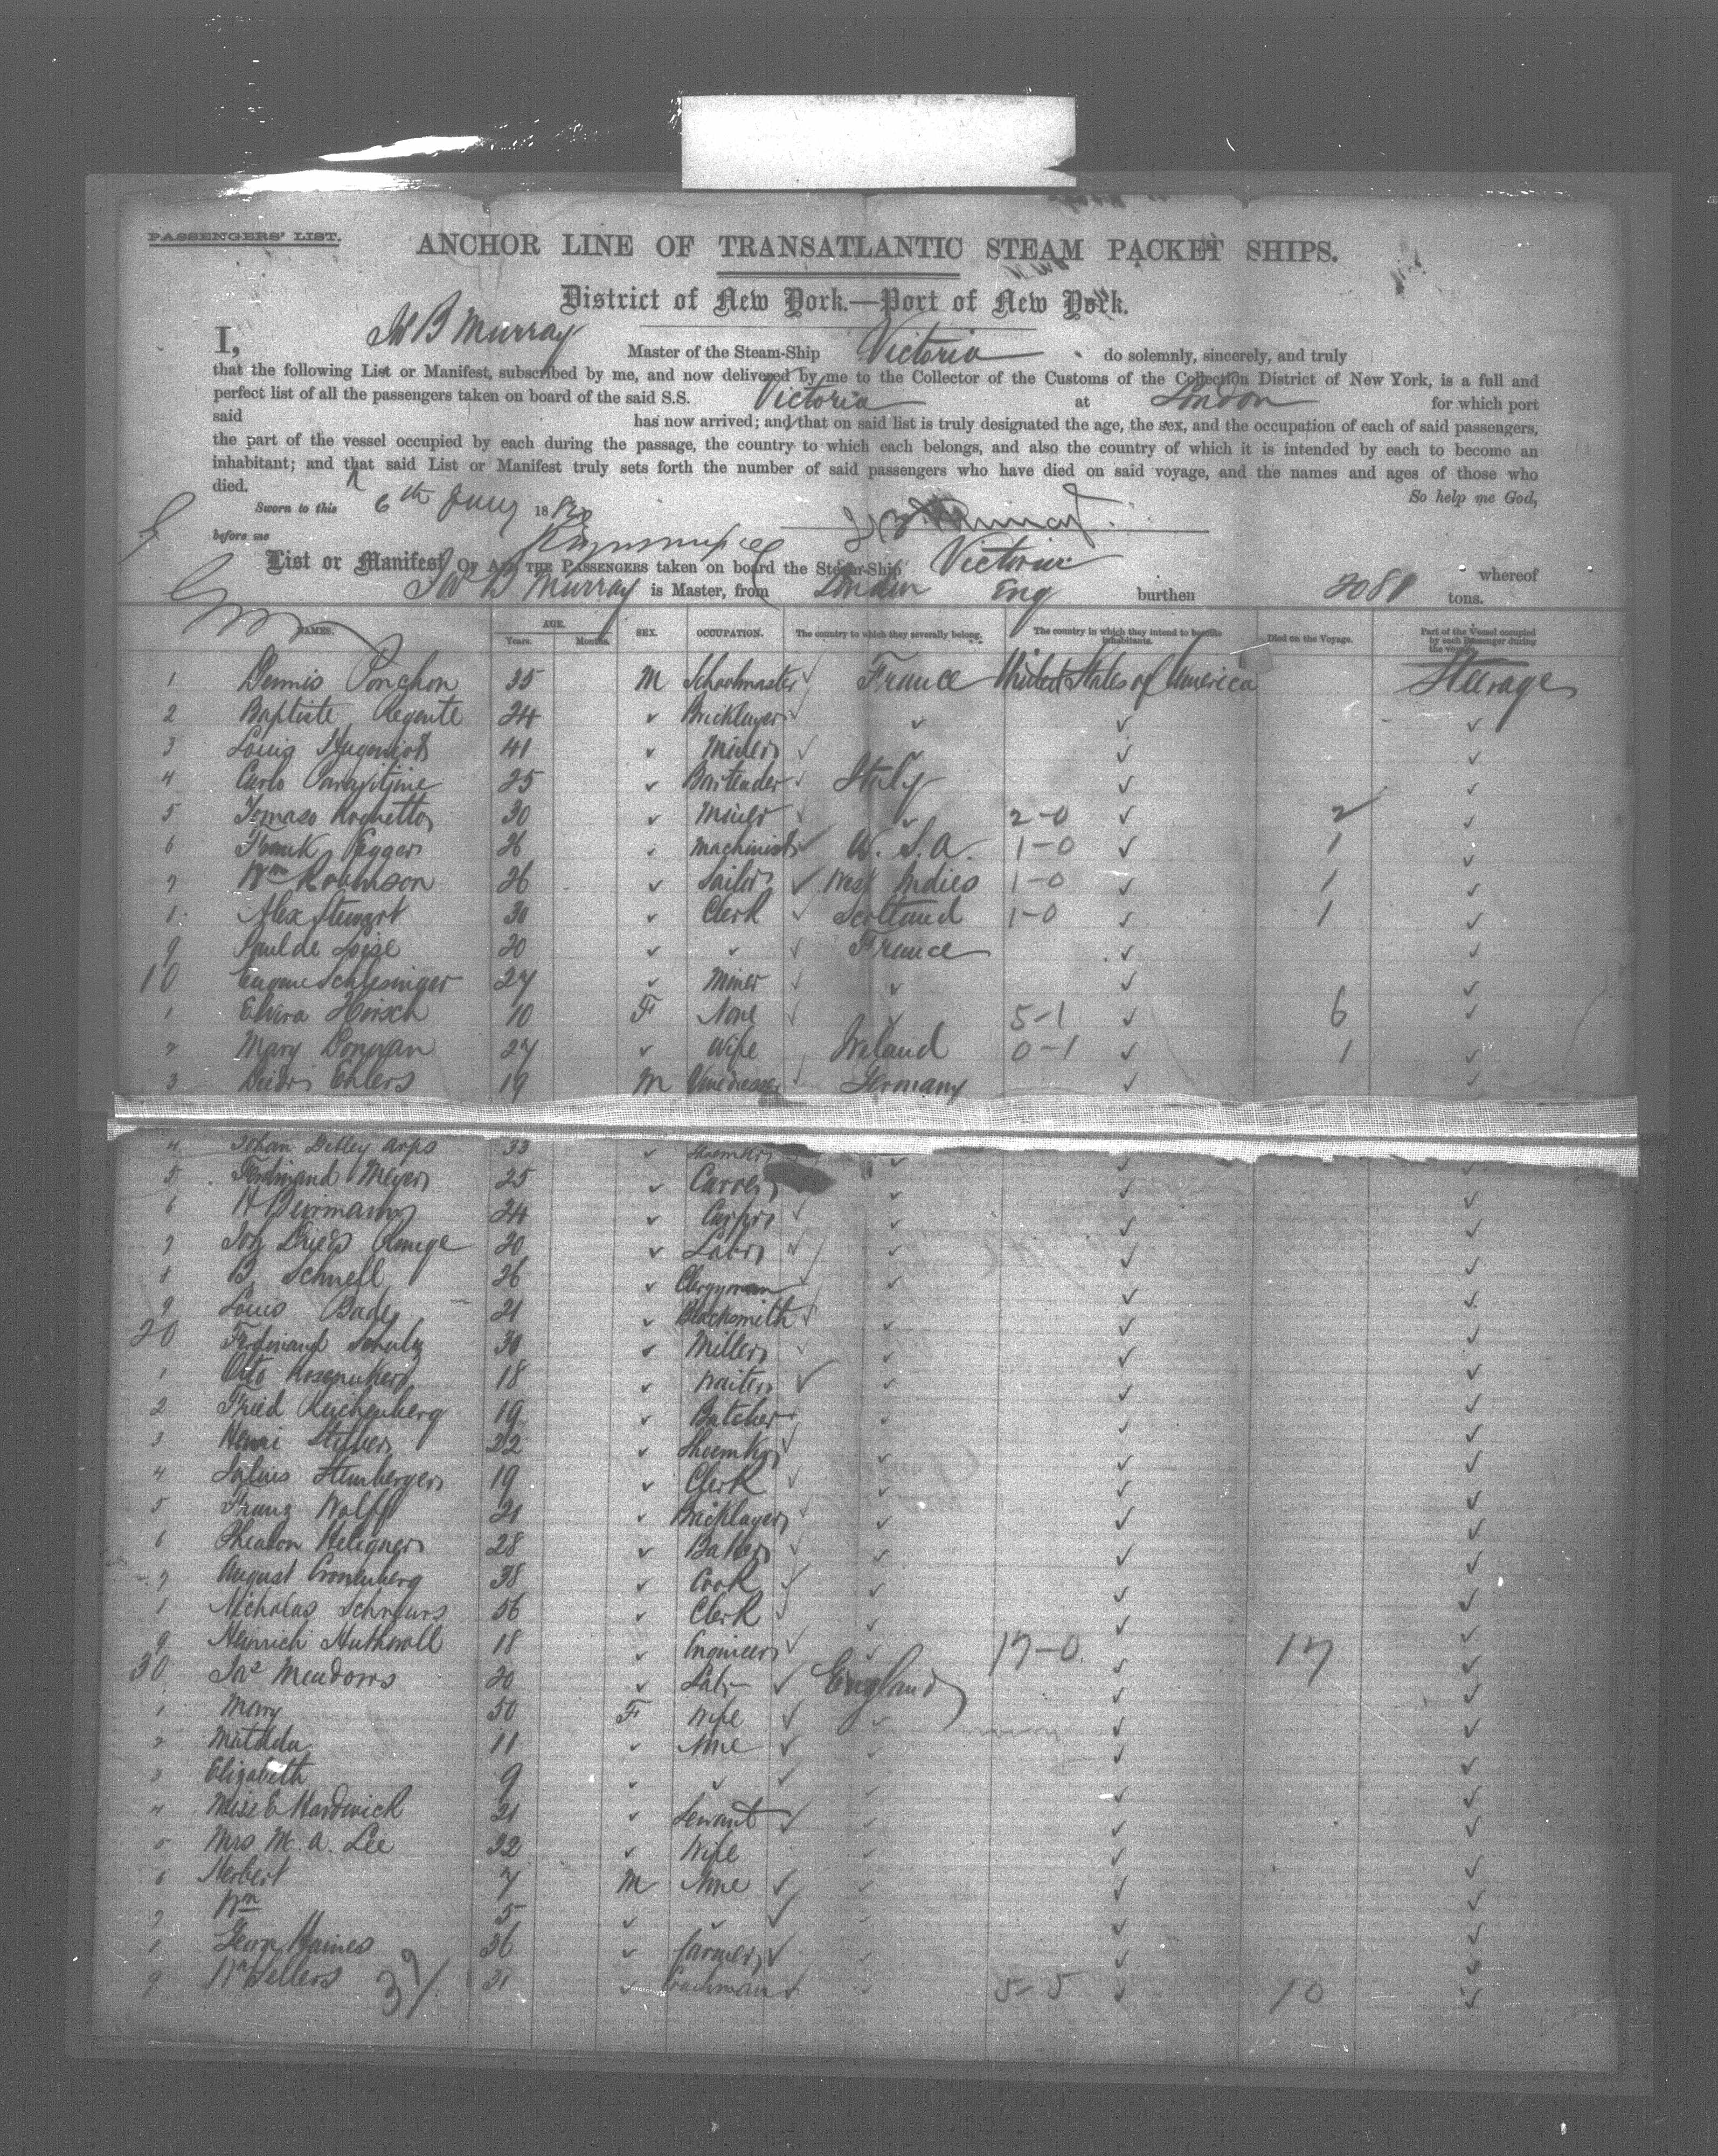 PASSENGERS' LIST.
ANCHOR LINE OF TRANSATLANTIC STEAM PACKET SHIPS.
District of New York.—Port of New York.
I, B Murray Master of the Steam-Ship Victoria do solemnly, sincerely, and truly
that the following List or Manifest, subscribed by me, and now delivered by me to the Collector of the Customs of the Collection District of New York, is a full and
perfect list of all the passengers taken on board of the said S.S. Victoria at London for which port
said has now arrived; and that on said list is truly designated the age, the sex, and the occupation of each of said passengers,
the part of the vessel occupied by each during the passage, the country to which each belongs, and also the country of which it is intended by each to become an
inhabitant; and that said List or Manifest truly sets forth the number of said passengers who have died on said voyage, and the names and ages of those who
died. So help me God,
Sworn to this 6th July 188
before me
List or Manifest OF ALL THE PASSENGERS taken on board the Steam-Ship Victoria whereof
B Murray is Master, from London Eng burthen 2081 tons.
NAMES. AGE. Years. Months. SEX. OCCUPATION. The country to which they severally belong. The country in which they intend to become inhabitants. Died on the Voyage. Part of the Vessel occupied by each Passenger during the voyage.
1 Dennis Ponchon 35 M Schoolmaster ✓ France United States of America Steerage
2 Baptiste Regente 24 ✓ Bricklayer ✓ ✓ ✓ ✓
3 Louis 41 ✓ Miner ✓ ✓ ✓ ✓
4 Carlo 25 ✓ Bartender ✓ Italy ✓ ✓
5 Tomaso 30 ✓ Miner ✓ ✓ 2-0 ✓ 2 ✓
6 Frank 26 ✓ Machinist ✓ U.S.A. 1-0 ✓ 1 ✓
7 Wm Robinson 26 ✓ Sailor ✓ West Indies 1-0 ✓ 1 ✓
1 Alex Stewart 30 ✓ Clerk ✓ Scotland 1-0 ✓ 1 ✓
9 Paul de 20 ✓ ✓ ✓ France ✓ ✓
10 Eugene Schlesinger 27 ✓ Miner ✓ ✓ ✓ ✓
1 Elvira Hirsch 10 F None ✓ ✓ 5-1 ✓ 6 ✓
2 Mary Donovan 27 ✓ Wife Ireland 0-1 ✓ 1 ✓
3 Ehlers 19 M Vinedresser ✓ Germany ✓ ✓
4 Johan Detley Arps 33 ✓ Shoemkr ✓ ✓ ✓
5 Ferdinand Meyer 25 ✓ Carver ✓ ✓ ✓
6 H 24 ✓ Carpr ✓ ✓ ✓ ✓
7 Joh 20 ✓ Labr ✓ ✓ ✓ ✓
8 B. Schnell 26 ✓ Clergyman ✓ ✓ ✓ ✓
9 Louis Bade 21 ✓ Blacksmith ✓ ✓ ✓ ✓
20 Ferdinand Schulz 30 ✓ Miller ✓ ✓ ✓ ✓
1 Otto 18 ✓ Waiter ✓ ✓ ✓ ✓
2 Fried Reichenberg 19 ✓ Butcher ✓ ✓ ✓
3 Henri 22 ✓ Shoemkr ✓ ✓ ✓ ✓
4 19 ✓ Clerk ✓ ✓ ✓ ✓
5 Franz Wolff 21 ✓ Bricklayer ✓ ✓ ✓ ✓
6 28 ✓ Baker ✓ ✓ ✓ ✓
7 August Cronenberg 38 ✓ Cook ✓ ✓ ✓ ✓
1 Nicholas 56 ✓ Clerk ✓ ✓ ✓ ✓
9 Heinrich 18 ✓ Engineer ✓ ✓ 17-0 ✓ 17 ✓
30 Jas Meadows 20 ✓ Labr ✓ England ✓ ✓
1 Mary 50 F Wife ✓ ✓ ✓ ✓
2 Matilda 11 ✓ None ✓ ✓ ✓ ✓
3 Elizabeth 9 ✓ ✓ ✓ ✓ ✓ ✓
4 Miss E Hardwick 21 ✓ Servant ✓ ✓ ✓ ✓
5 Mrs M. A. Lee 32 ✓ Wife ✓ ✓ ✓
6 Herbert 7 M None ✓ ✓ ✓ ✓
7 Wm 5 ✓ ✓ ✓ ✓ ✓ ✓
1 Haines 36 ✓ Farmer ✓ ✓ ✓ ✓
9 Wm Sellers 39/ 31 ✓ Coachman ✓ ✓ 5-5 ✓ 10 ✓